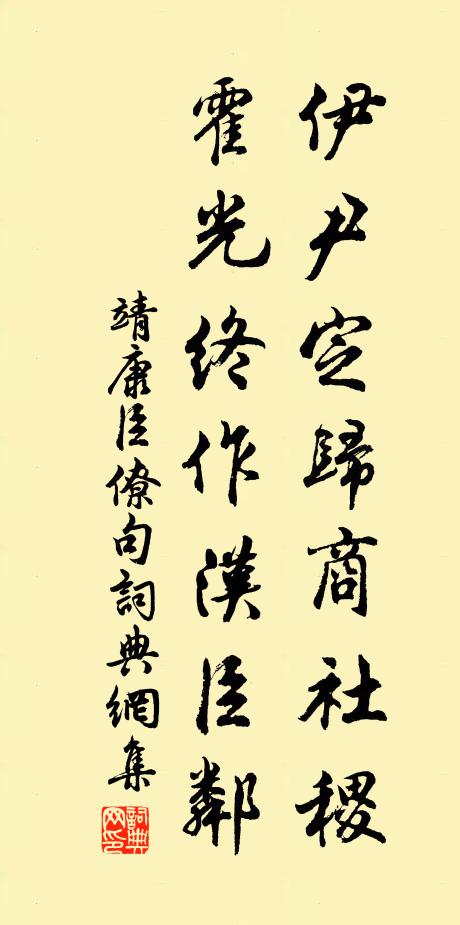 伊尹定歸商社稷
霍光終作漢臣鄰
靖康臣僚句詞典網集
詞典
网印